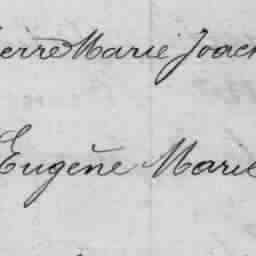 ierre Marie Joach
Eugène Marie